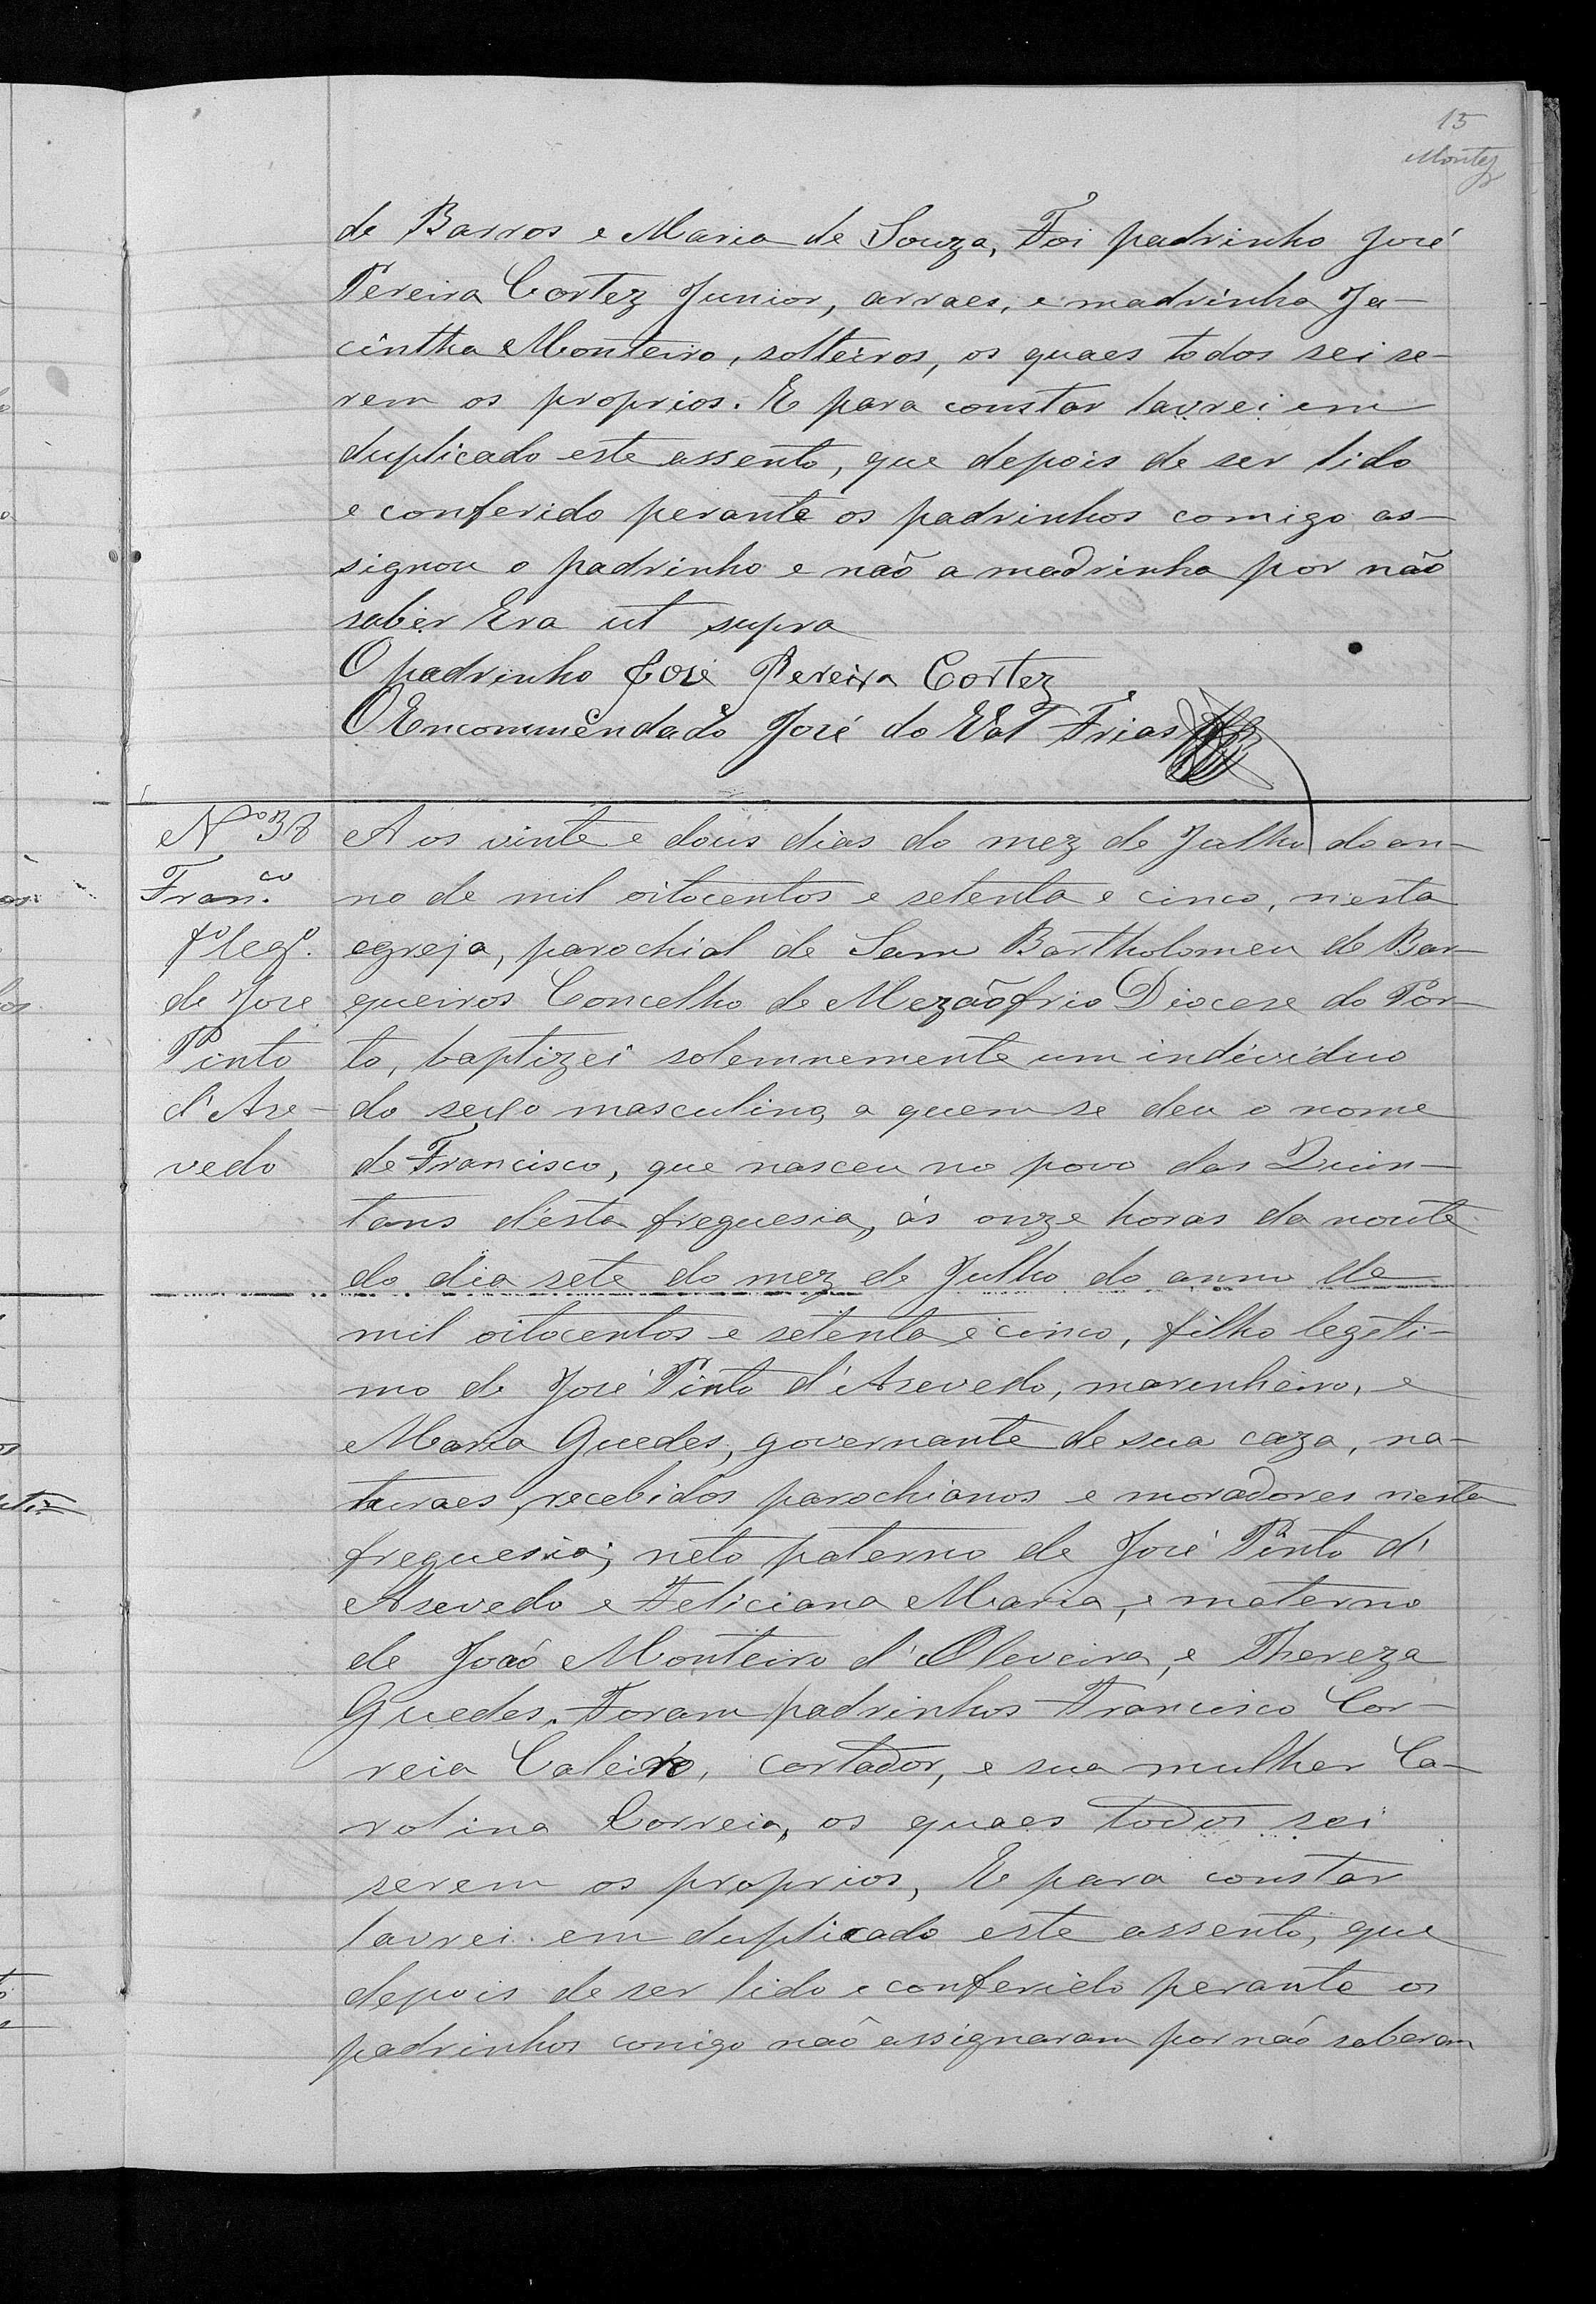 15
Montez
de Barros e Maria de Souza, Foi padrinho José
Pereira Cortez Junior, arraes, e madrinha Ja-
cintha Monteiro, solteiros, os quaes todos sei se-
rem os proprios. E para constar lavrei em
duplicado este assento, que depois de ser lido
e conferido perante os padrinhos comigo as-
signou o padrinho e não a madrinha por não
saber Era ut supra
O padrinho José Pereira Cortez
O Encommendado José do Val Frias
Nº 38
Franco.
fº legº.
de Jose
Pinto
d'Aze-
vedo
Aos vinte e dous dias do mez de Julho do an-
no de mil oitocentos e setenta e cinco, nesta
egreja, parochial de Sam Bartholomeu de Bar-
queiros Concelho de Mezãofrio Diocese do Por-
to, baptizei solemnemente um individuo
do sexo masculino, a quem se deu o nome
de Francisco, que nasceu no povo das Quin-
tans d'esta freguesia, ás onze horas da noute
do dia sete do mez de Julho do anno de
mil oitocentos e setenta e cinco, filho legiti-
mo de José Pinto d'Asevedo, marinheiro, e
Maria Guedes, governante de sua caza, na-
turaes, recebidos parochianos e moradores nesta
freguesia; neto paterno de José Pinto d'
Asevedo e Feliciana Maria, e materno
de João Monteiro d'Oleveira, e Thereza
Guedes. Foram padrinhos Francisco Cor-
reia Caleiro, cortador, e sua mulher Ca-
rolina Correia, os quaes todos sei
serem os proprios, E para constar
lavrei em duplicado este assento, que
depois de ser lido e conferido perante os
padrinhos comigo não assignaram por não saberem